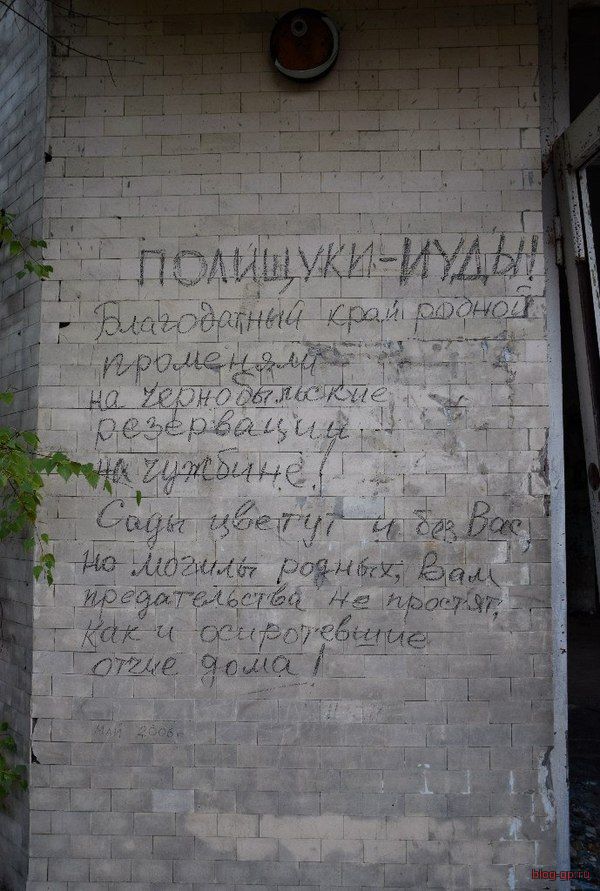 ПОЛИЩУКИ-ИУДЫ!
Благодатный край родной
променяли
на чернобыльские
резервации
на чужбине!
Сады цветут и без Вас,
но могилы родных, Вам
предательства не простят,
как и осиротевшие
отчие дома!
МАЙ 2006г.
blog-op.ru